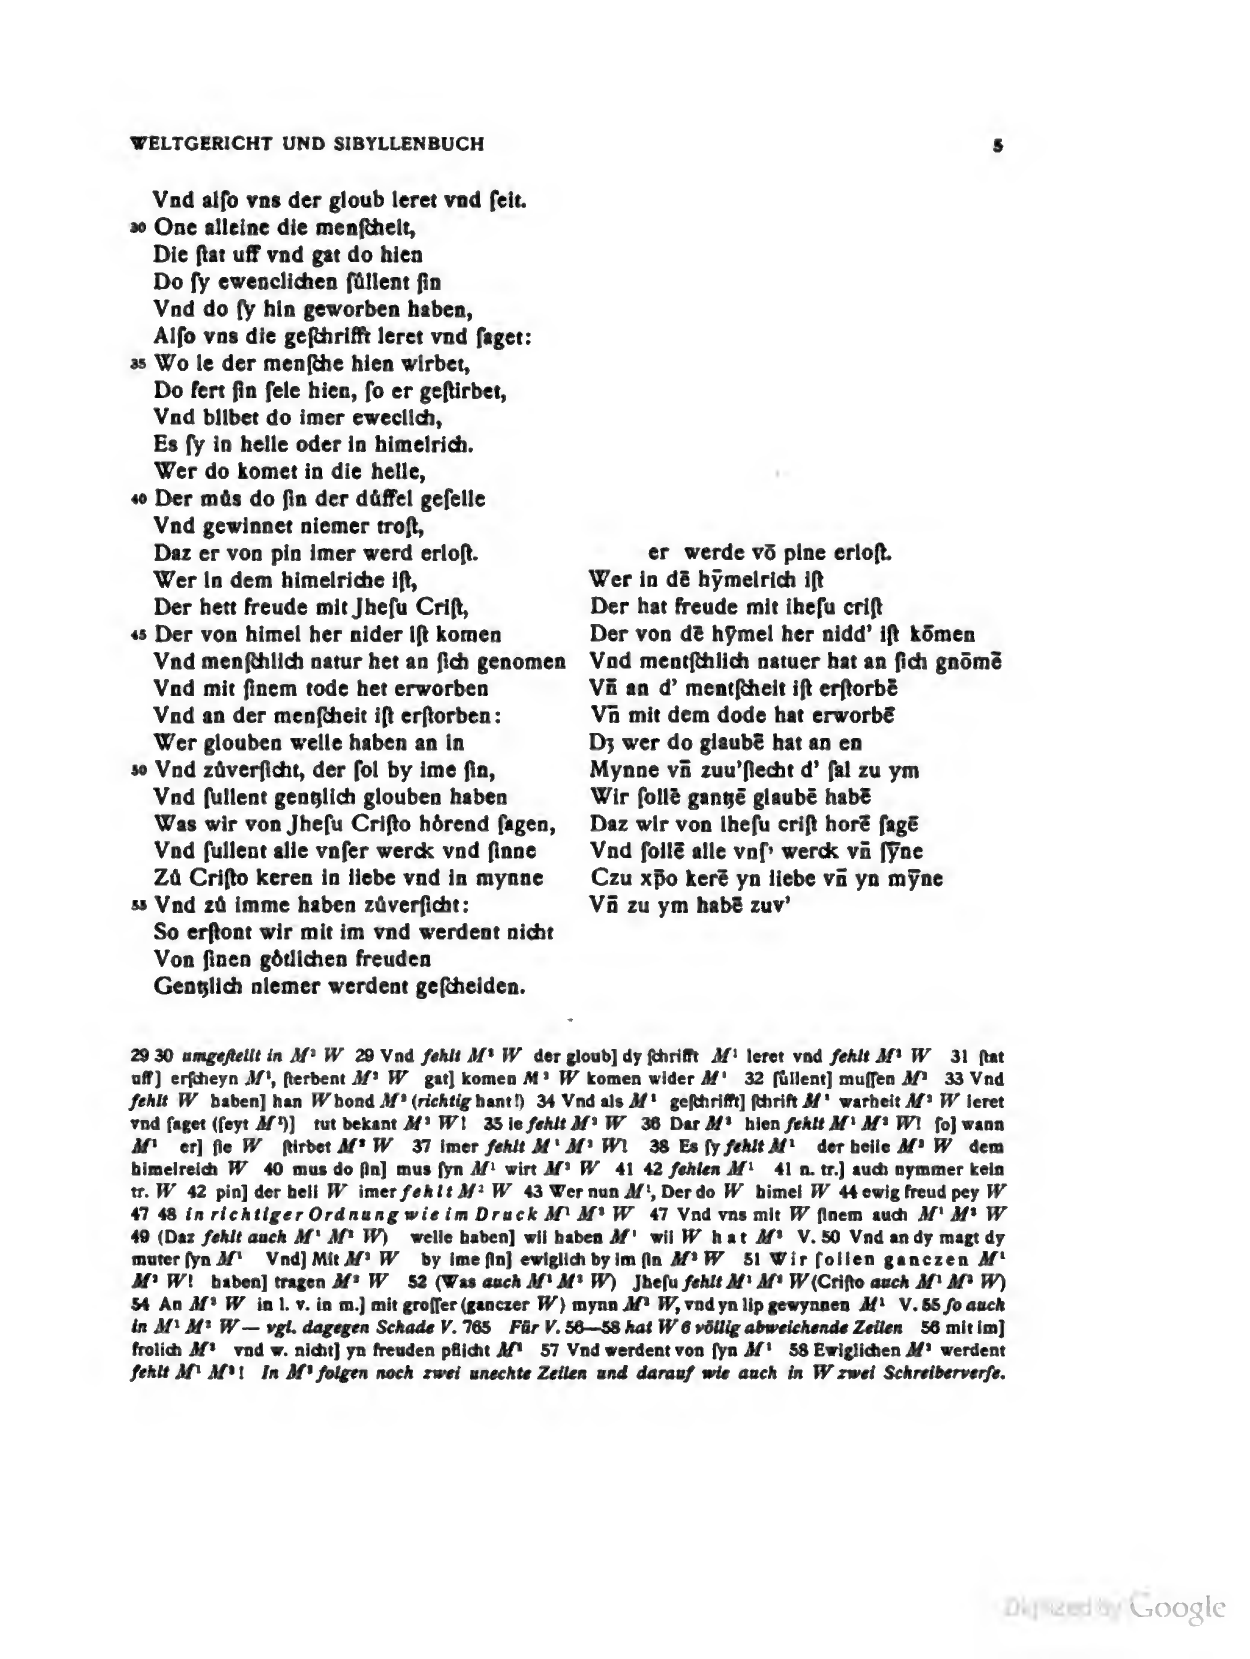 WELTGERICHT UND SIBYLLENBUCH 5
Vnd alſo vns der gloub leret vnd ſeit.
30 One alleine die menſcheit,
Die ſtat uff vnd gat do hien
Do ſy ewenclichen ſüllent ſin
Vnd do ſy hin geworben haben,
Alſo vns die geſchrifft leret vnd ſaget:
35 Wo ie der menſche hien wirbet,
Do fert ſin ſele hien, ſo er geſtirbet,
Vnd blibet do imer eweclich,
Es ſy in helle oder in himelrich.
Wer do komet in die helle,
40 Der můs do ſin der důffel geſelle
Vnd gewinnet niemer troſt,
Daz er von pin imer werd erloſt.
Wer in dem himelriche iſt,
Der hett freude mit Jheſu Criſt,
45 Der von himel her nider iſt komen
Vnd menſchlich natur het an ſich genomen
Vnd mit ſinem tode het erworben
Vnd an der menſcheit iſt erſtorben:
Wer glouben welle haben an in
50 Vnd zůverſicht, der ſol by ime ſin,
Vnd ſullent gentzlich glouben haben
Was wir von Jheſu Criſto hörend ſagen,
Vnd ſullent alle vnſer werck vnd ſinne
Zů Criſto keren in liebe vnd in mynne
55 Vnd zů imme haben zůverſicht:
So erſtont wir mit im vnd werdent nicht
Von ſinen götlichen freuden
Gentzlich niemer werdent geſcheiden.
er werde vō pine erloſt.
Wer in dē hȳmelrich iſt
Der hat freude mit iheſu criſt
Der von dē hȳmel her nidd' iſt kōmen
Vnd mentſchlich natuer hat an ſich gnōmē
Vn̄ an d' mentſcheit iſt erſtorbē
Vn̄ mit dem dode hat erworbē
Dʒ wer do glaubē hat an en
Mynne vn̄ zuu'ſiecht d' ſal zu ym
Wir ſollē gantzē glaubē habē
Daz wir von iheſu criſt horē ſagē
Vnd ſollē alle vnſ' werck vn̄ ſȳne
Czu xp̄o kerē yn liebe vn̄ yn mȳne
Vn̄ zu ym habē zuv'
29 30 umgeſtellt in M² W 29 Vnd fehlt M² W der gloub] dy ſchrifft M¹ leret vnd fehlt M² W 31 ſtat
uff] erſcheyn M¹, ſterbent M² W gat] komen M² W komen wider M¹ 32 ſüllent] muſſen M² 33 Vnd
fehlt W haben] han W hond M² (richtig hant!) 34 Vnd als M¹ geſchrifft] ſchrift M¹ warheit M² W leret
vnd ſaget (ſeyt M¹)] tut bekant M² W! 35 ie fehlt M² W 36 Dar M² hien fehlt M¹ M² W! ſo] wann
M¹ er] ſie W ſtirbet M² W 37 imer fehlt M¹ M² W! 38 Es ſy fehlt M¹ der helle M² W dem
himelreich W 40 mus do ſin] mus ſyn M¹ wirt M² W 41 42 fehlen M¹ 41 n. tr.] auch nymmer kein
tr. W 42 pin] der hell W imer fehlt M² W 43 Wer nun M¹, Der do W himel W 44 ewig freud pey W
47 48 in richtiger Ordnung wie im Druck M¹ M² W 47 Vnd vns mit W ſinem auch M¹ M² W
49 (Daz fehlt auch M¹ M² W) welle haben] wil haben M¹ wil W hat M² V. 50 Vnd an dy magt dy
muter ſyn M¹ Vnd] Mit M² W by ime ſin] ewiglich by im ſin M² W 51 Wir ſollen ganczen M¹
M² W! haben] tragen M² W 52 (Was auch M¹ M² W) Jheſu fehlt M¹ M² W (Criſto auch M¹ M² W)
54 An M² W in l. v. in m.] mit groſſer (ganczer W) mynn M² W, vnd yn lip gewynnen M¹ V. 55 ſo auch
in M¹ M² W — vgl. dagegen Schade V. 765 Für V. 56—58 hat W 6 völlig abweichende Zeilen 56 mit im]
frolich M² vnd w. nicht] yn freuden pflicht M¹ 57 Vnd werdent von ſyn M¹ 58 Ewiglichen M² werdent
fehlt M¹ M²! In M² folgen noch zwei unechte Zeilen und darauf wie auch in W zwei Schreiberverſe.
Digitized by Google